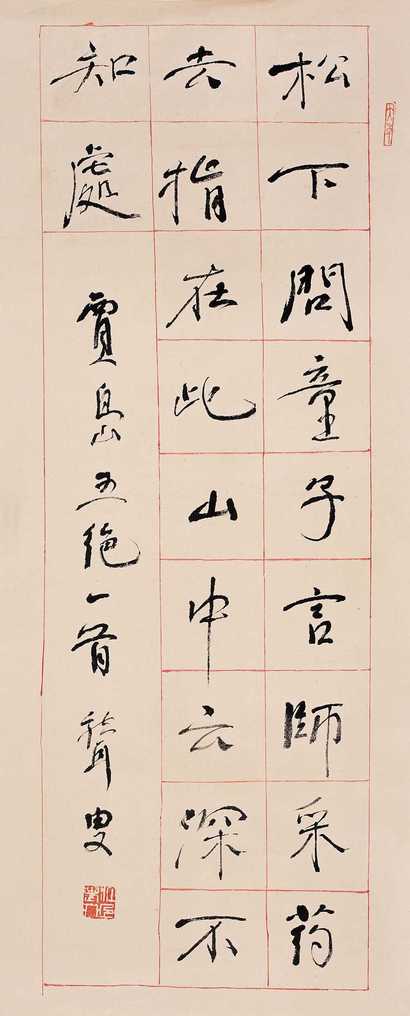 松下問童子言師采药
去指在此山中云深不
知處
賈島五絕一首聾叟